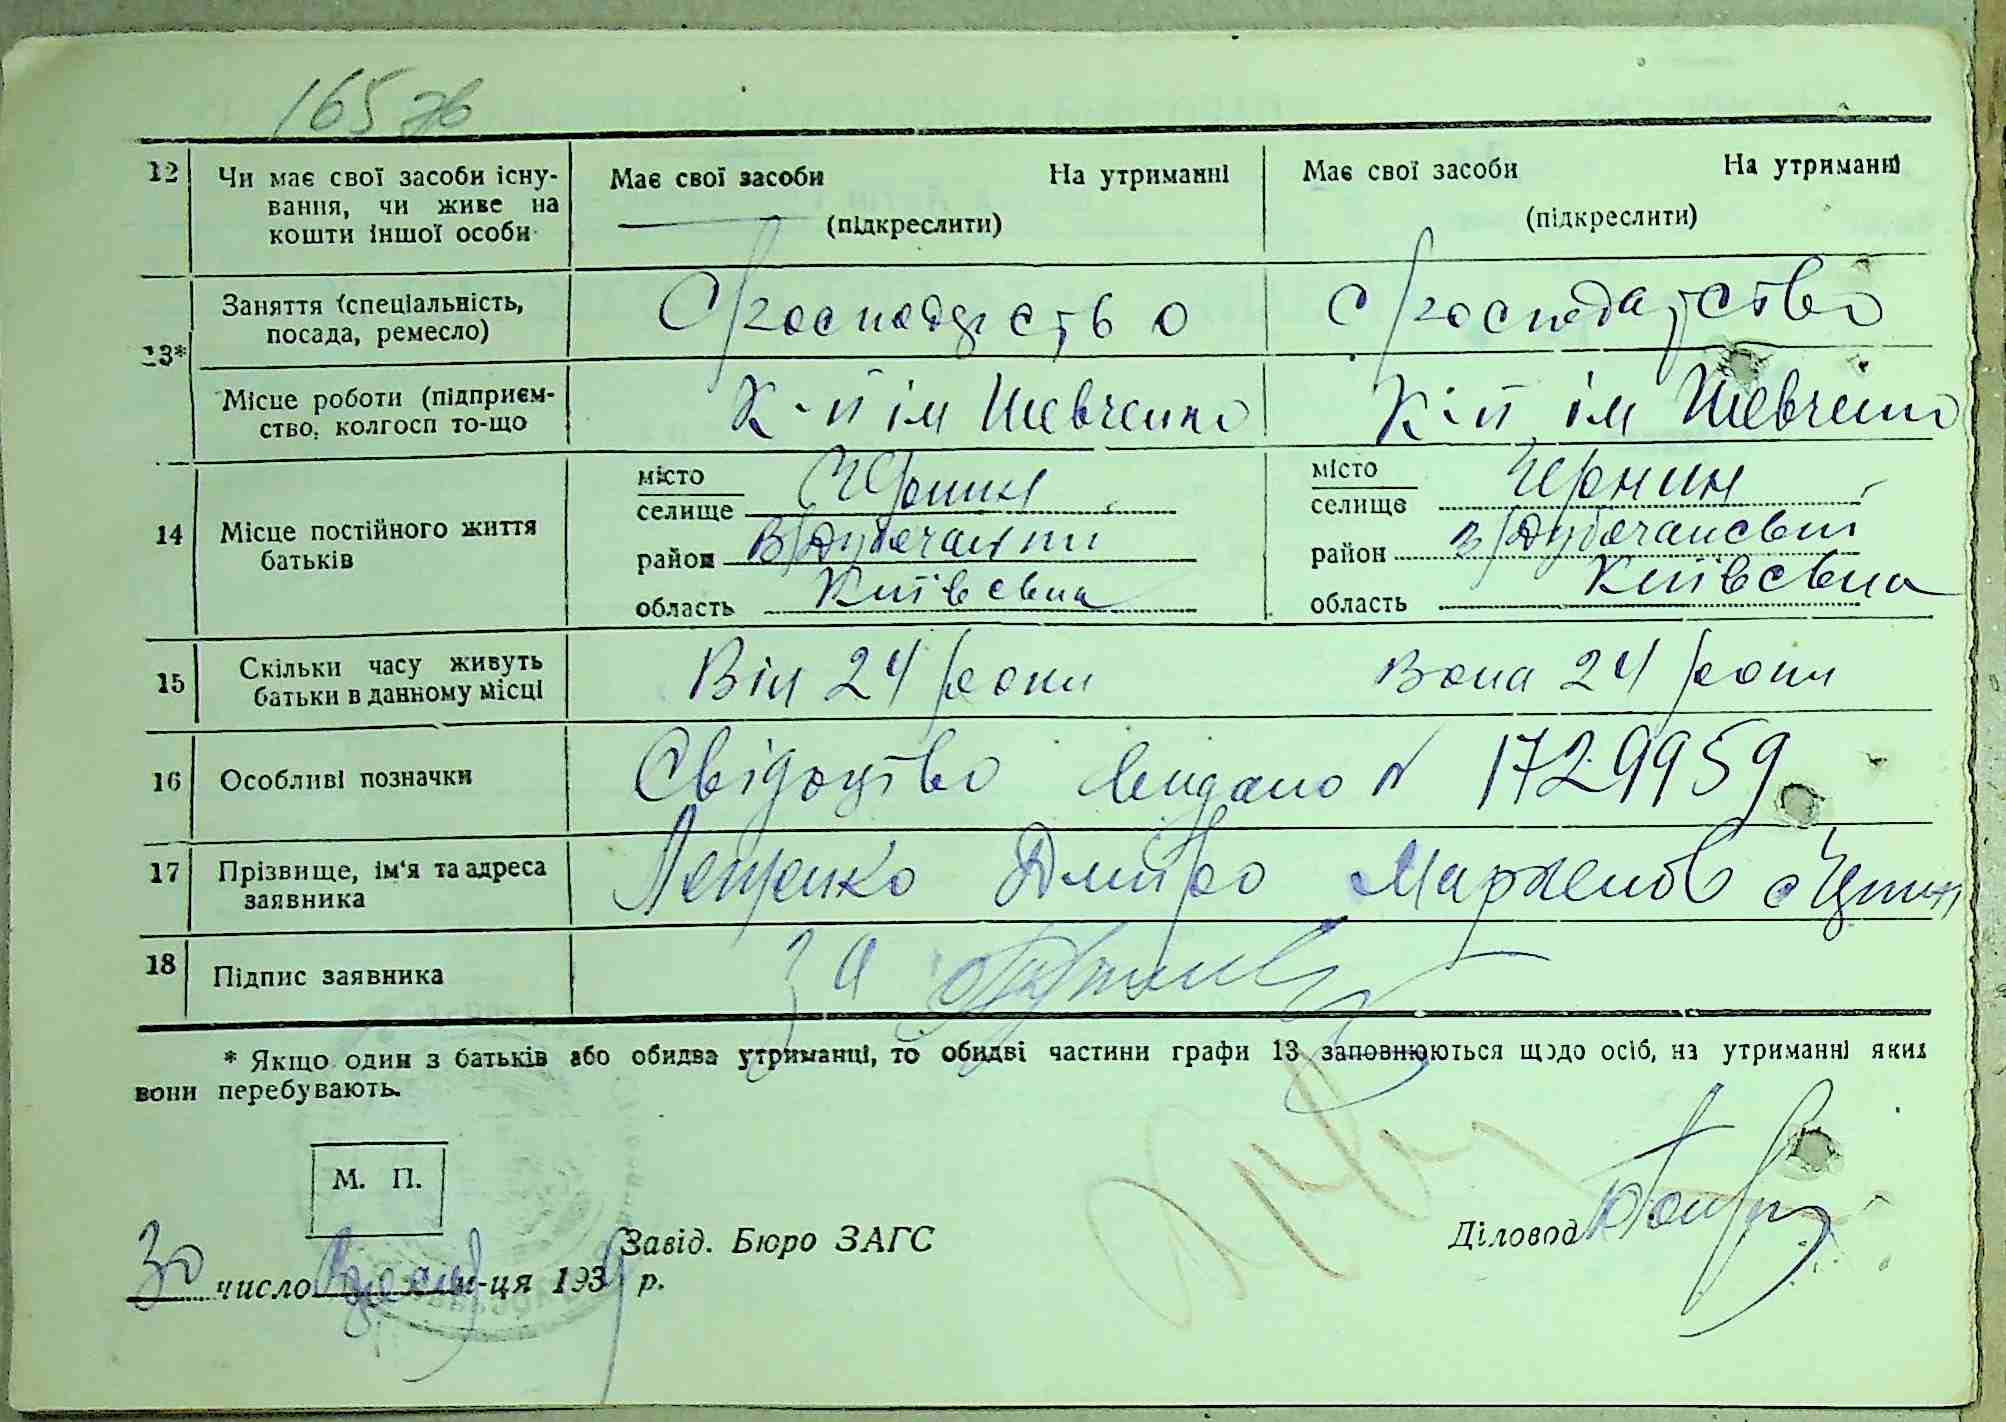 165 зв
12 Чи має свої засоби існу-
вання, чи живе на
кошти іншої особи
Має свої засоби На утриманні
(підкреслити)
Має свої засоби На утриманні
(підкреслити)
13*
Заняття (спеціальність,
посада, ремесло)
С/господарство
С/господарство
Місце роботи (підприєм-
ство, колгосп то-що
К-п ім Шевченко
К-п ім Шевченко
14 Місце постійного життя
батьків
місто
селище
район В/Дубечански
область Київська
місто
селище Чернин
район В/Дубечанський
область Київська
15 Скільки часу живуть
батьки в данному місці
Він 24 роки Вона 24 роки
16 Особливі позначки
Свідоцтво видано № 1729959
17 Прізвище, ім'я та адреса
заявника
Лещенко Дмитро
18 Підпис заявника
за
* Якщо один з батьків або обидва утриманці, то обидві частини графи 13 заповнюються щодо осіб, на утриманні яких
вони перебувають.
М. П.
Завід. Бюро ЗАГС
Діловод
30 число м-ця 1939 р.